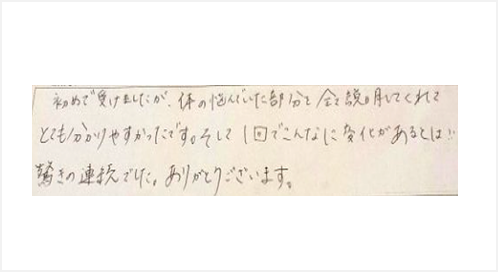 初めて受けましたが、体の悩んでいた部分を全て説明してくれて
とても分かりやすかったです。そして1回でこんなに変化があるとは!!
驚きの連続でした。ありがとうございます。